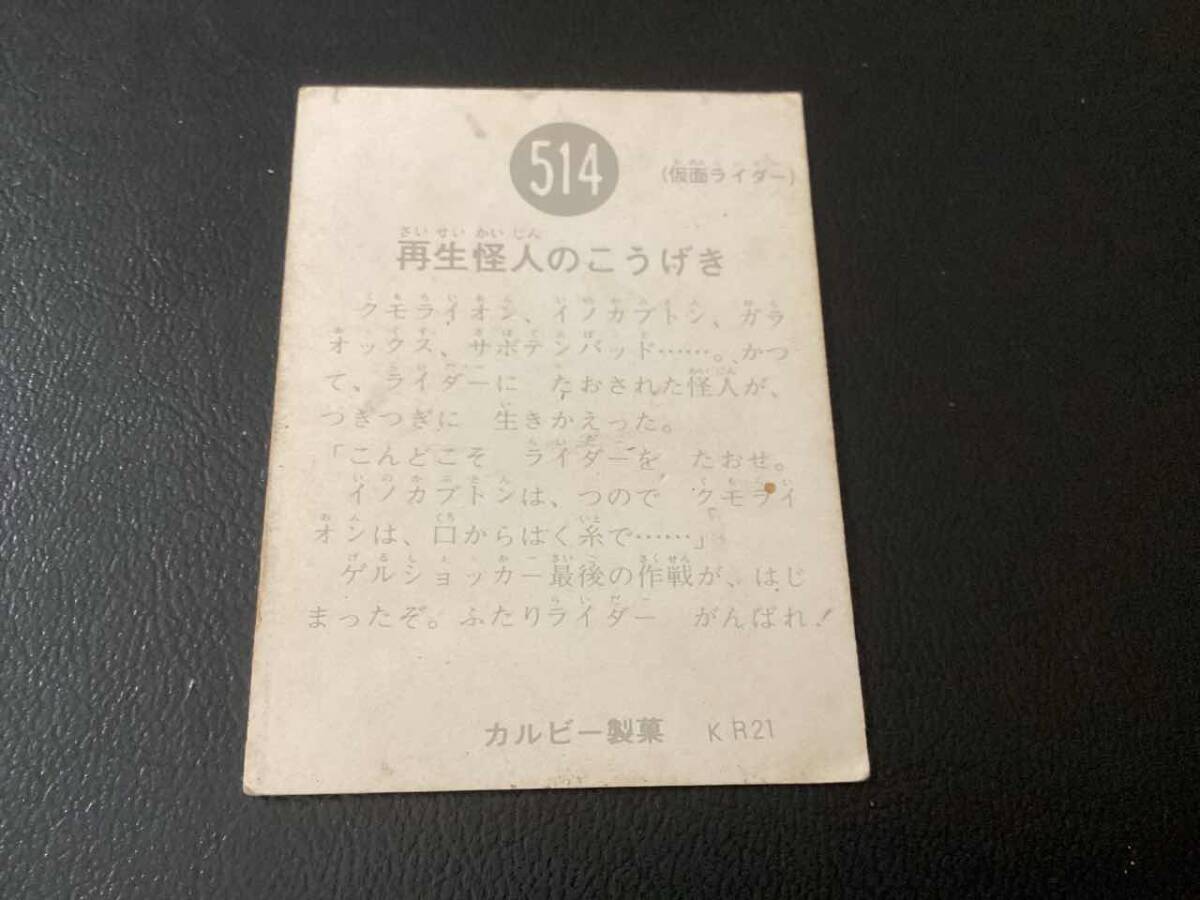 514
(仮面ライダー)
さいせいかいじん
再生怪人のこうげき
クモライオン、イノカブトン、ガラ
オックス、サボテンバッド……。かつ
て、ライダーに たおされた怪人が、
つぎつぎに 生きかえった。
「こんどこそ ライダーを たおせ。
イノカブトンは、つので クモライ
オンは、口からはく糸で……」
ゲルショッカー最後の作戦が、はじ
まったぞ。ふたりライダー がんばれ!
カルビー製菓 KR21